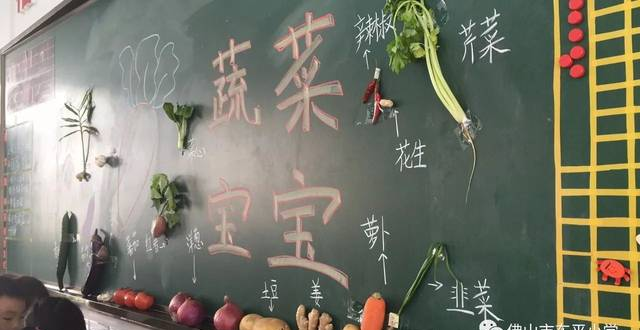 蔬菜
宝宝
辣椒
芹菜
花生
萝卜
韭菜
菜心
番茄
洋葱
土豆
姜
佛山市东平小学